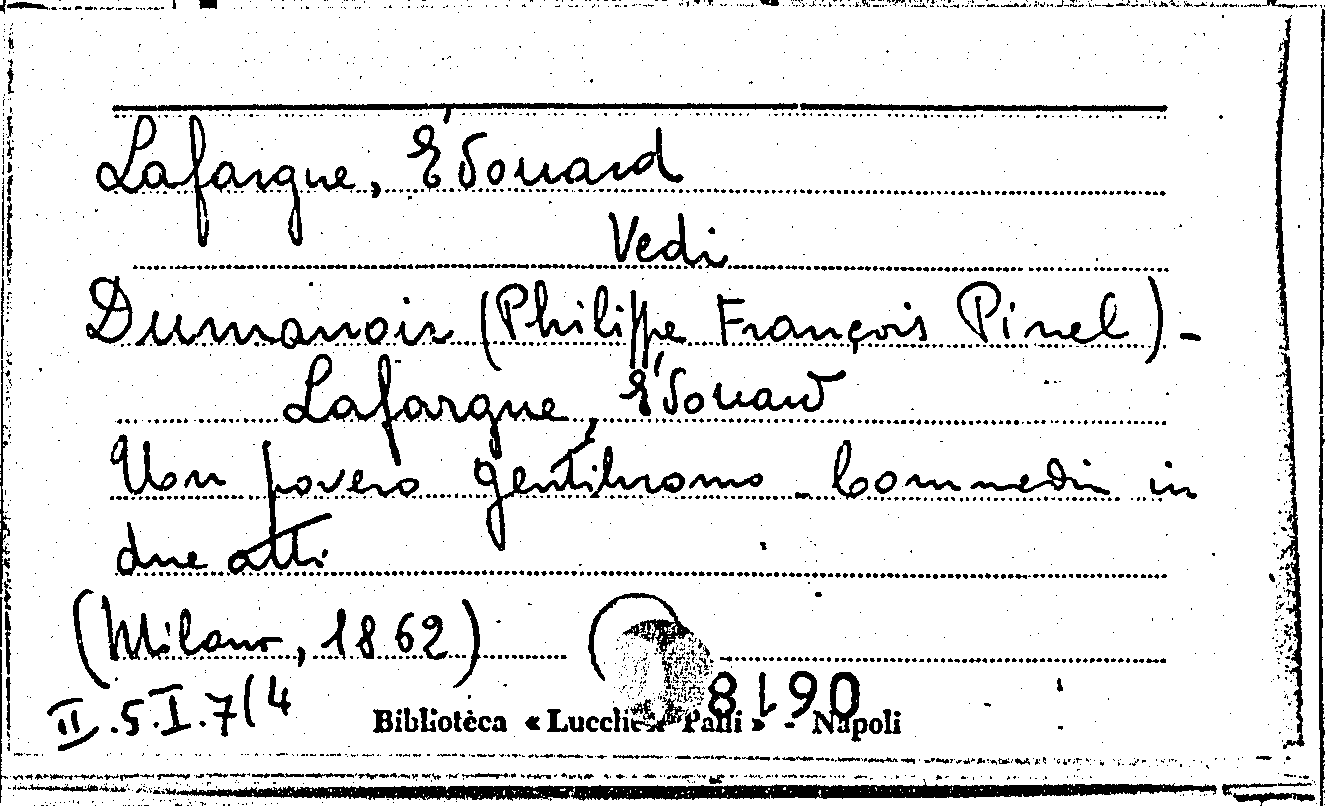 Lafargue, Édouard
Vedi
Dumanoir (Philippe François Pinel) -
Lafargue, Édouard
Un povero gentiluomo - Commedia in
due atti
(Milano, 1862)
II.5.I.7(4
8190
Biblioteca « Lucchesi Palli » - Napoli